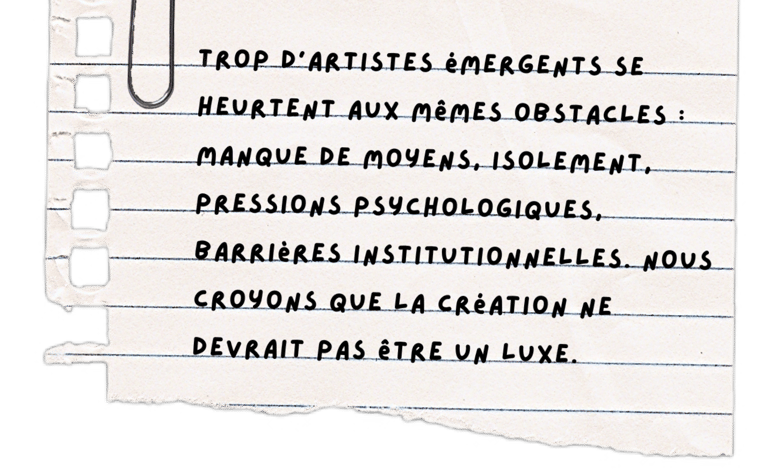 TROP D'ARTISTES éMERGENTS SE
HEURTENT AUX MêMES OBSTACLES :
MANQUE DE MOYENS, ISOLEMENT,
PRESSIONS PSYCHOLOGIQUES,
BARRIèRES INSTITUTIONNELLES. NOUS
CROYONS QUE LA CRéATION NE
DEVRAIT PAS êTRE UN LUXE.